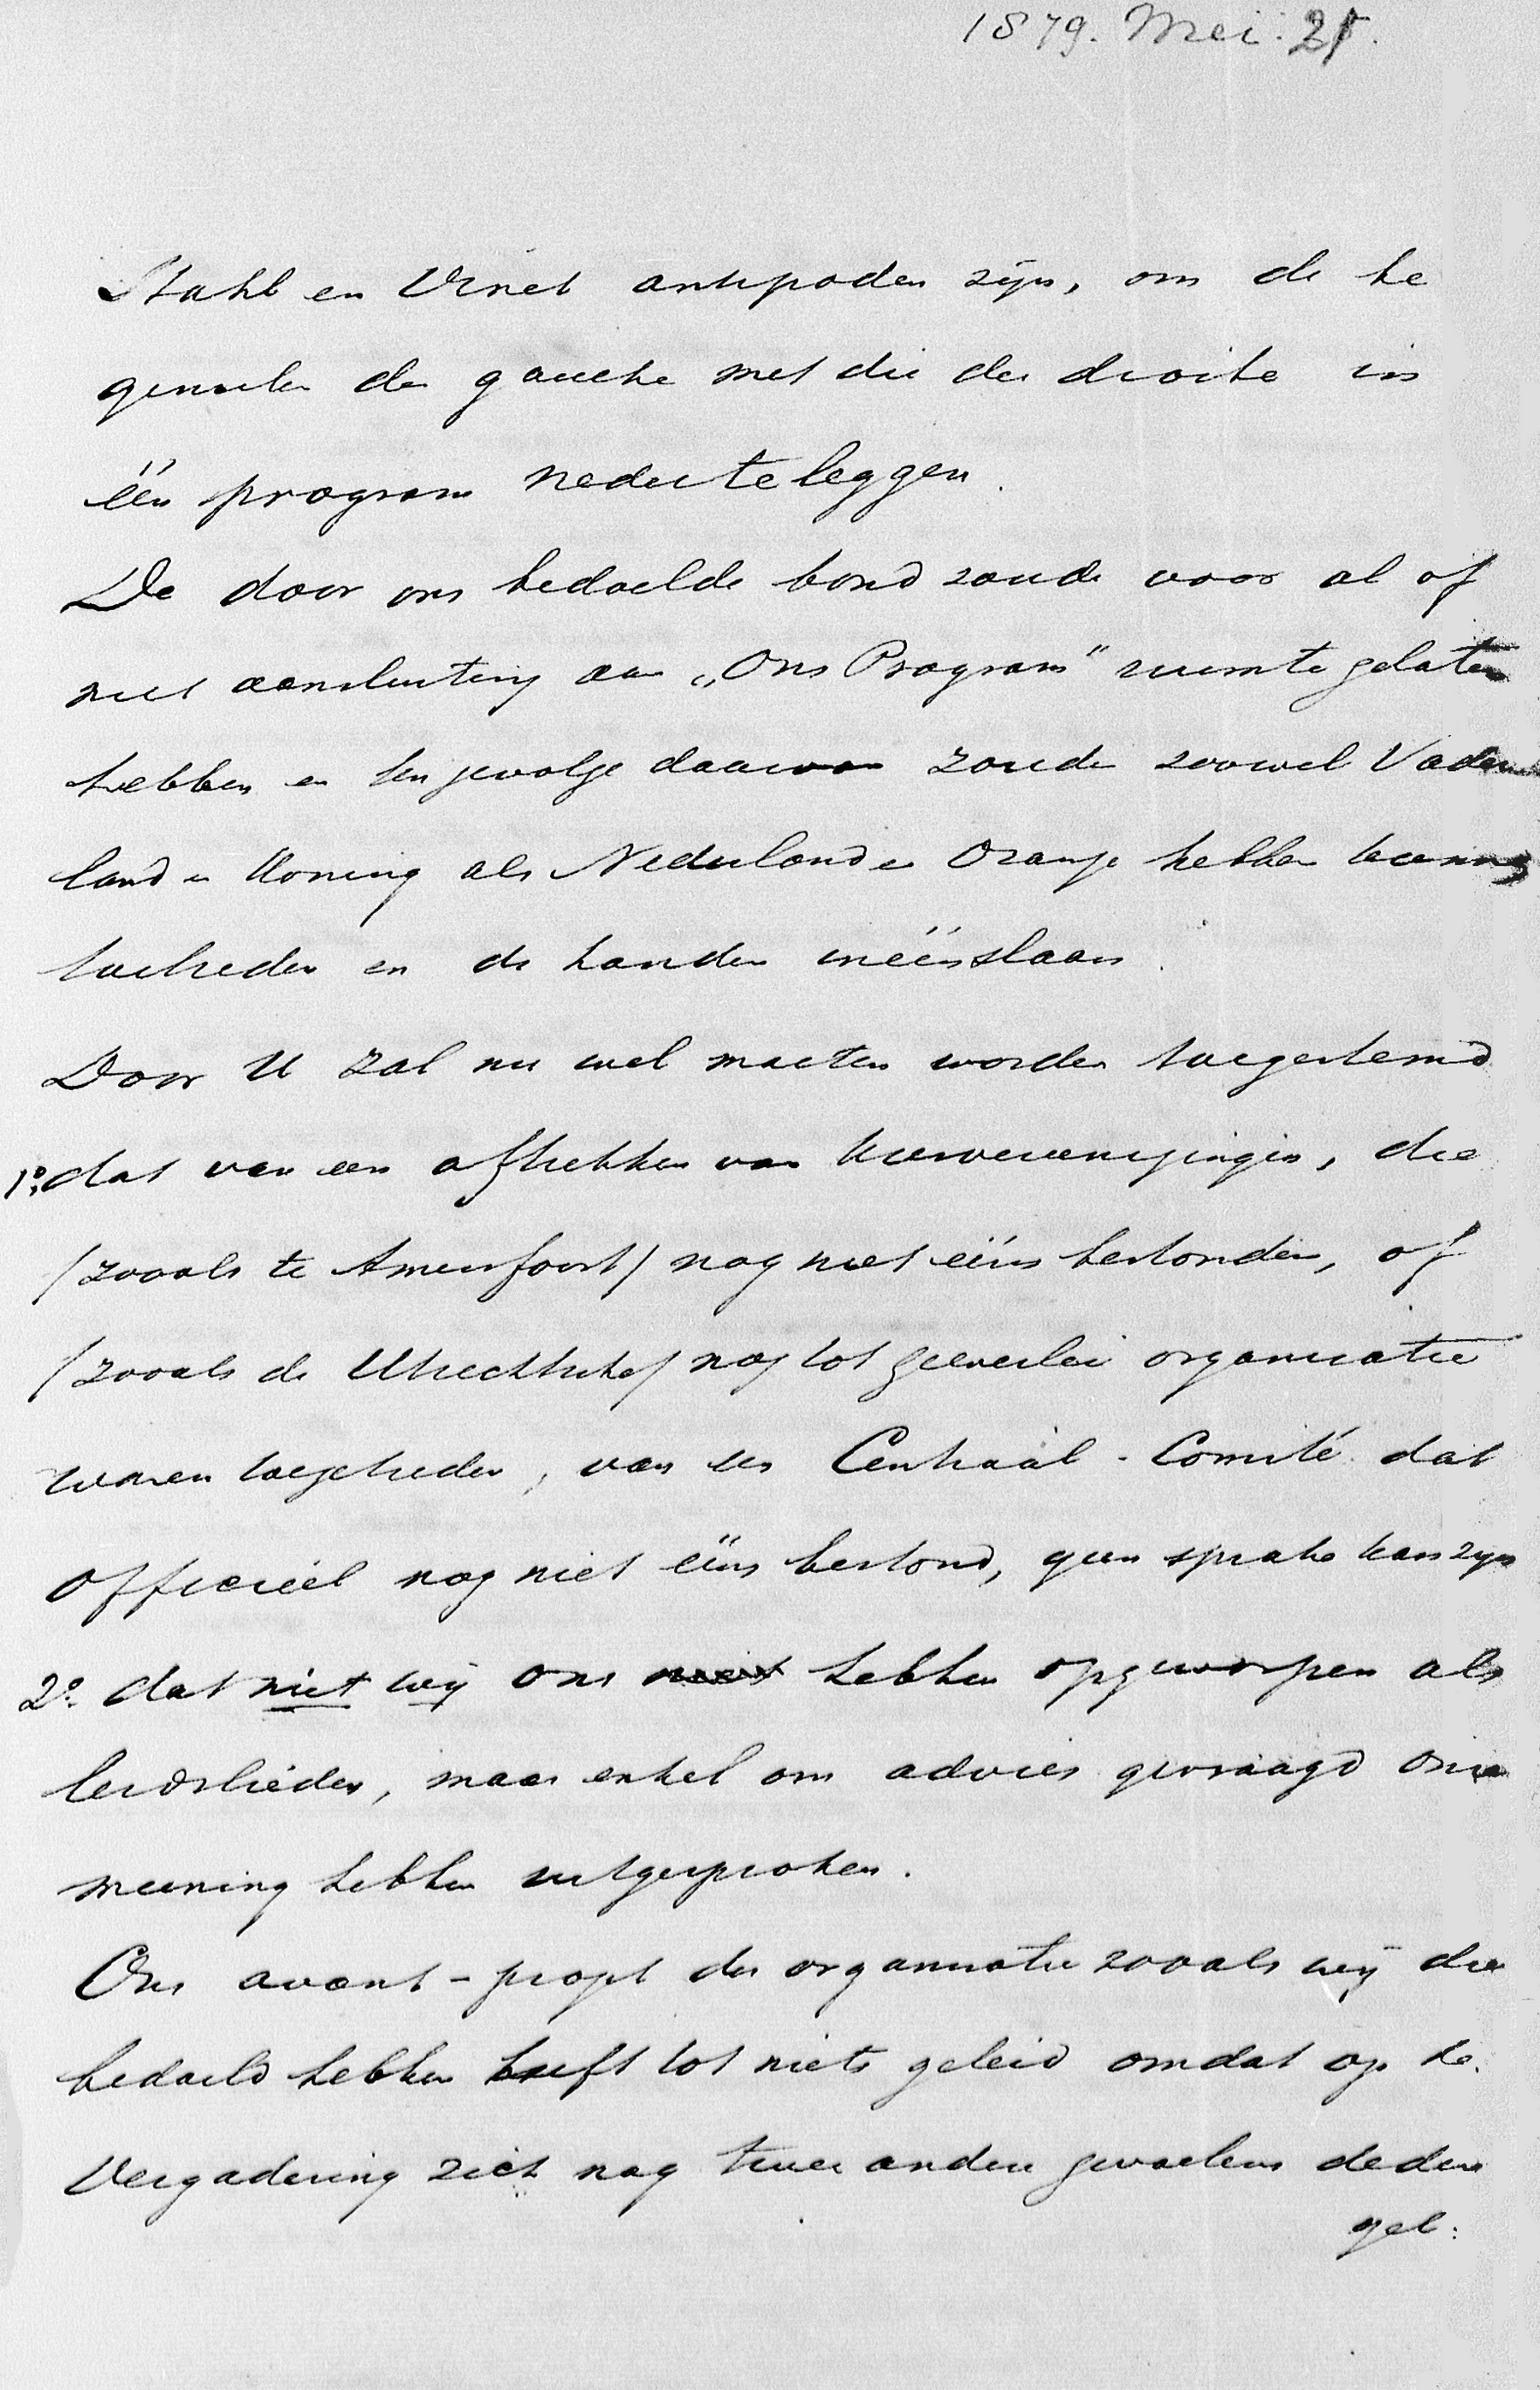 1879. Mei: 21.
Stahl en Vinet antipoden zijn, om de be
ginselen der gauche met die der droite in
één program nederteleggen.
De door ons bedoelde bond zoude voor al of
niet aansluiting aan „Ons Program" ruimte gelaten
hebben en tengevolge daarvan zoude zoowel Vader
land en Koning als Nederland en Oranje hebben kunnen
toetreden en de handen inéénslaan.
Door U zal nu wel moeten worden toegestemd
1o. dat van een aftrekken van Kiesvereenigingen, die
(zooals te Amersfoort) nog niet ééns bestonden, of
(zooals de Utrechtsche) nog tot geenerlei organisatie
waren toegetreden, van een Centraal-Comité dat
officiëel nog niet ééns bestond, geen sprake kan zijn
2o. dat niet wij ons hebben opgeworpen als
leidslieden, maar enkel om advies gevraagd onze
meening hebben uitgesproken.
Ons avant-projet der organisatie zooals wij die
bedoeld hebben heeft tot niets geleid omdat op de
Vergadering zich nog twee andere gevoelens deden
gel: